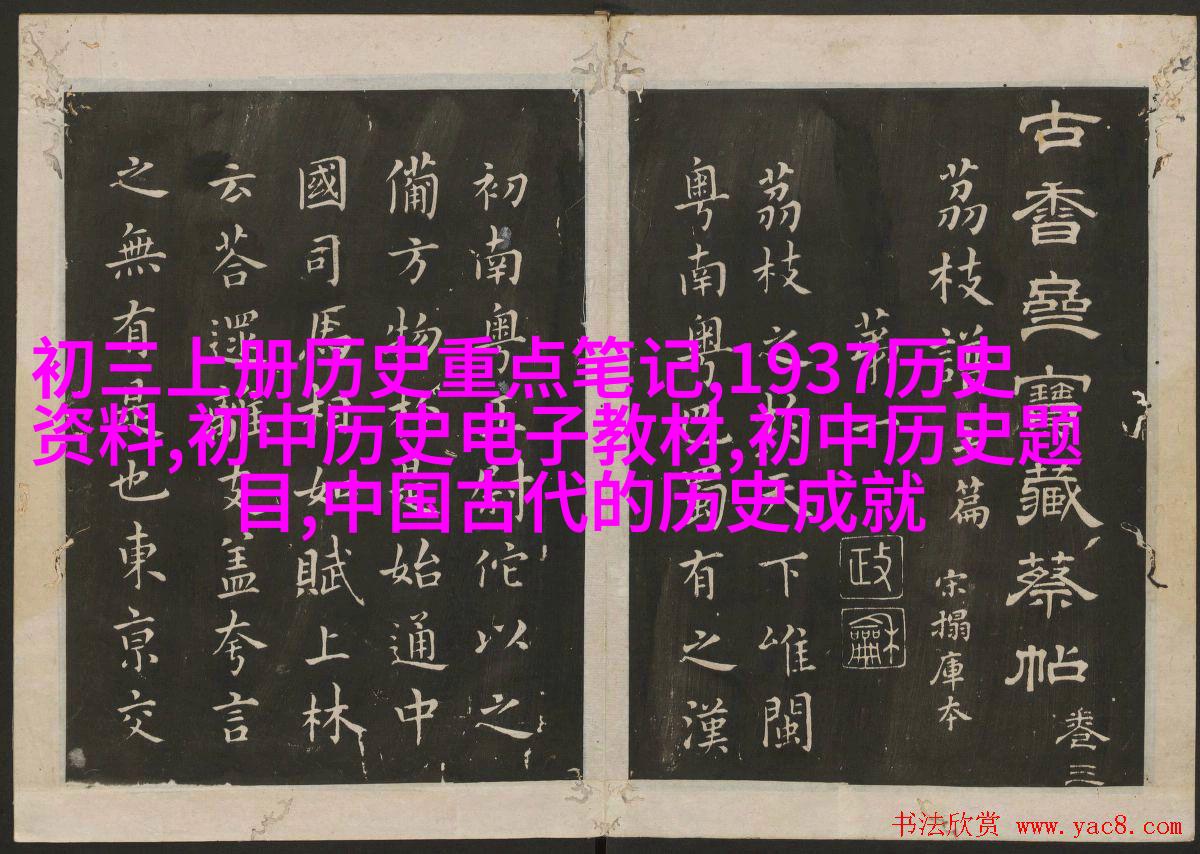 初三上册历史重点笔记,1937历史
资料,初中历史电子教材,初中历史题
目,中国古代的历史成就
古香齋寶藏蔡帖 卷三
荔枝譜 篇 宋搨庫本
第一
政龢
荔枝之於天下唯閩
粵南粵巴蜀有之漢
初南粵王尉佗以之
備方物於是始通中
國司馬相如賦上林
云荅遝離支盖夸言
之無有是也東京交
书法欣赏 www.yac8.com